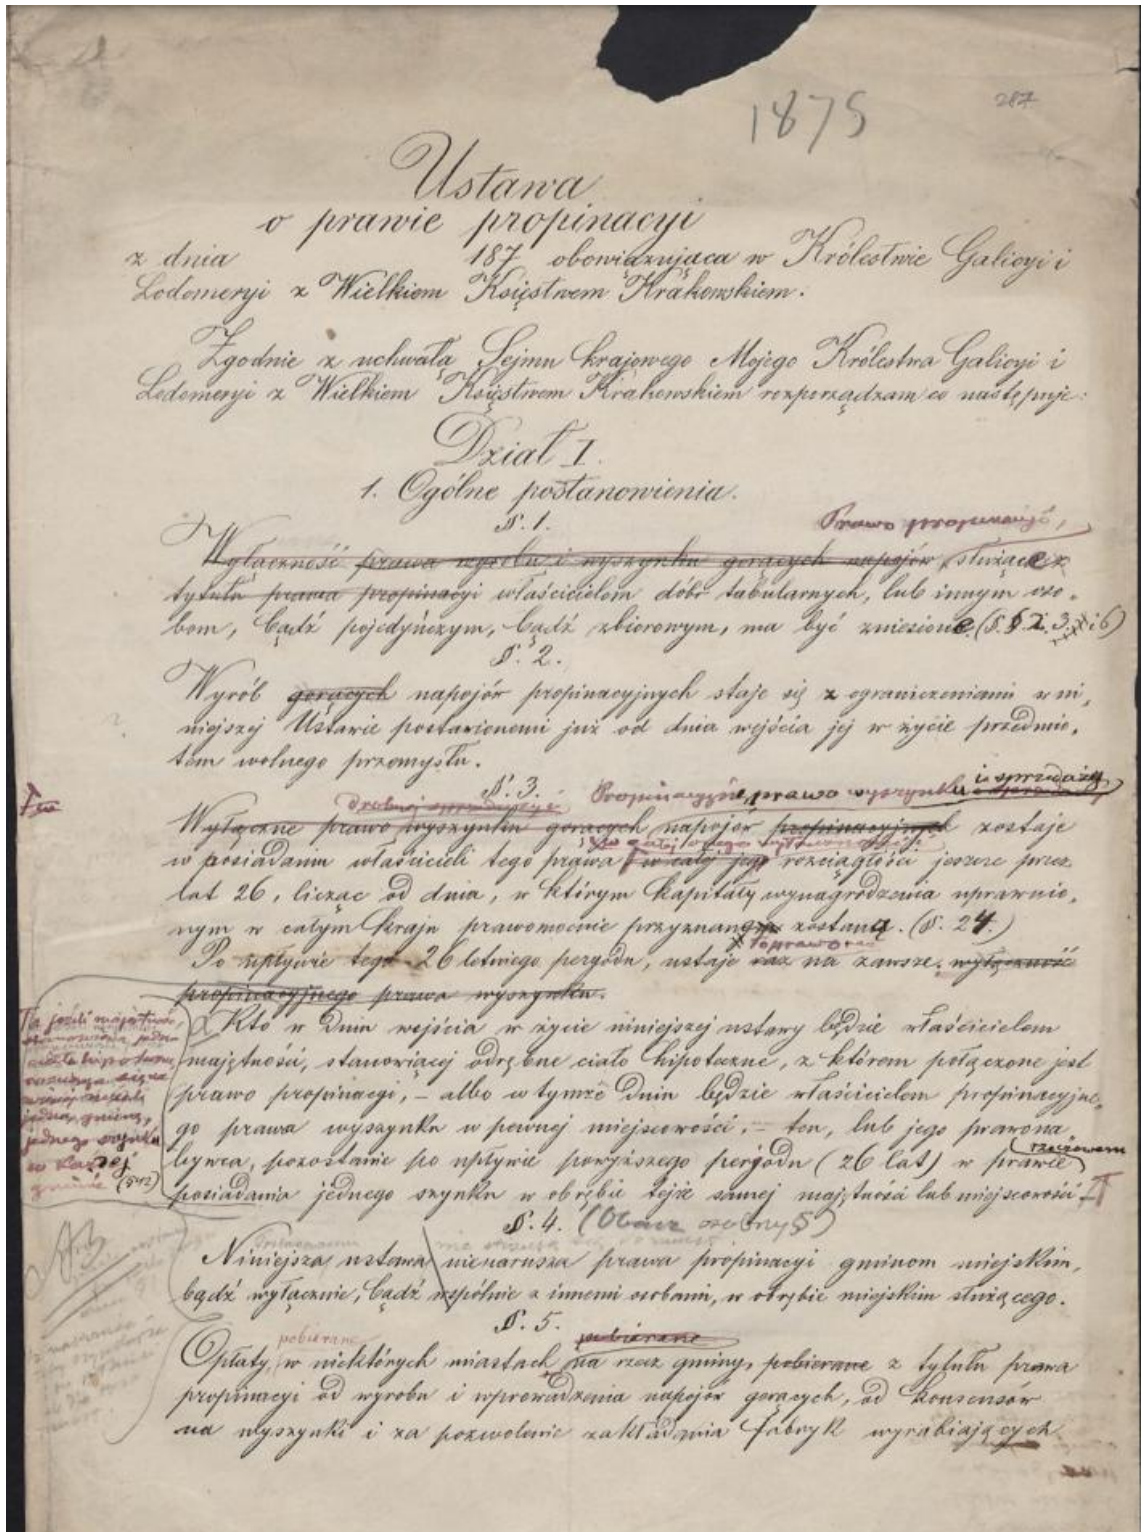 1875
287
Ustawa
o prawie propinacyi
z dnia 187 obowiązująca w Królestwie Galicyi i
Lodomeryi z Wielkiem Księstwem Krakowskiem.
Zgodnie z uchwałą Sejmu krajowego Mojego Królestwa Galicyi i
Lodomeryi z Wielkiem Księstwem Krakowskiem rozporządzam co następuje:
Dział I.
1. Ogólne postanowienia.
§. 1.
Prawo propinacyi,
Wyłączność prawa wyrobu i wyszynku gorących napojów służące z
tytułu prawa propinacyi właścicielom dóbr tabularnych, lub innym oso-
bom, bądź pojedyńczym, bądź zbiorowym, ma być zniesione. (§. § 2. 3. i 6)
§. 2.
Wyrób gorących napojów propinacyjnych staje się z ograniczeniami w ni-
niejszej Ustawie postawionemi już od dnia wejścia jej w życie przedmio-
tem wolnego przemysłu.
§. 3.
Propinacyjne prawo wyszynku i sprzedaży
Wyłączne prawo wyszynku gorących napojów propinacyjnych zostaje
w posiadaniu właścicieli tego prawa w całej jego rozciągłości jeszcze przez
lat 26, licząc od dnia, w którym kapitały wynagrodzenia uprawnio-
nym w całym kraju prawomocnie przyznane zostaną. (§. 24.)
to prawo
Po upływie tego 26 letniego peryodu, ustaje raz na zawsze. wyłączność
propinacyjnego prawa wyszynku.
Kto w dniu wejścia w życie niniejszej ustawy będzie właścicielem
majętności, stanowiącej odrębne ciało hipoteczne, z którem połączone jest
prawo propinacyi, – albo w tymże dniu będzie właścicielem propinacyjne-
go prawa wyszynku w pewnej miejscowości. – ten, lub jego prawona
bywca, pozostanie po upływie powyższego peryodu (26 lat) w prawie rzeczowem
posiadania jednego szynku w obrębie tejże samej majętności lub miejscowości
a jeśli majętność,
stanowiąca jedno
ciało hipoteczne,
rozciąga się na
więcej niż
jedną gminę,
jednego szynku
w każdej
gminie
§. 4. (Obacz osobny §)
Niniejsza ustawa nienarusza prawa propinacyi gminom miejskim,
bądź wyłącznie, bądź wspólnie z innemi osobami, w obrębie miejskim służącego.
§. 5.
pobierane pobierane
Opłaty, w niektórych miastach na rzecz gminy, pobierane z tytułu prawa
propinacyi od wyrobu i wprowadzenia napojów gorących, od konsensów
na wyszynki i za pozwolenie zakładania fabryk wyrabiających